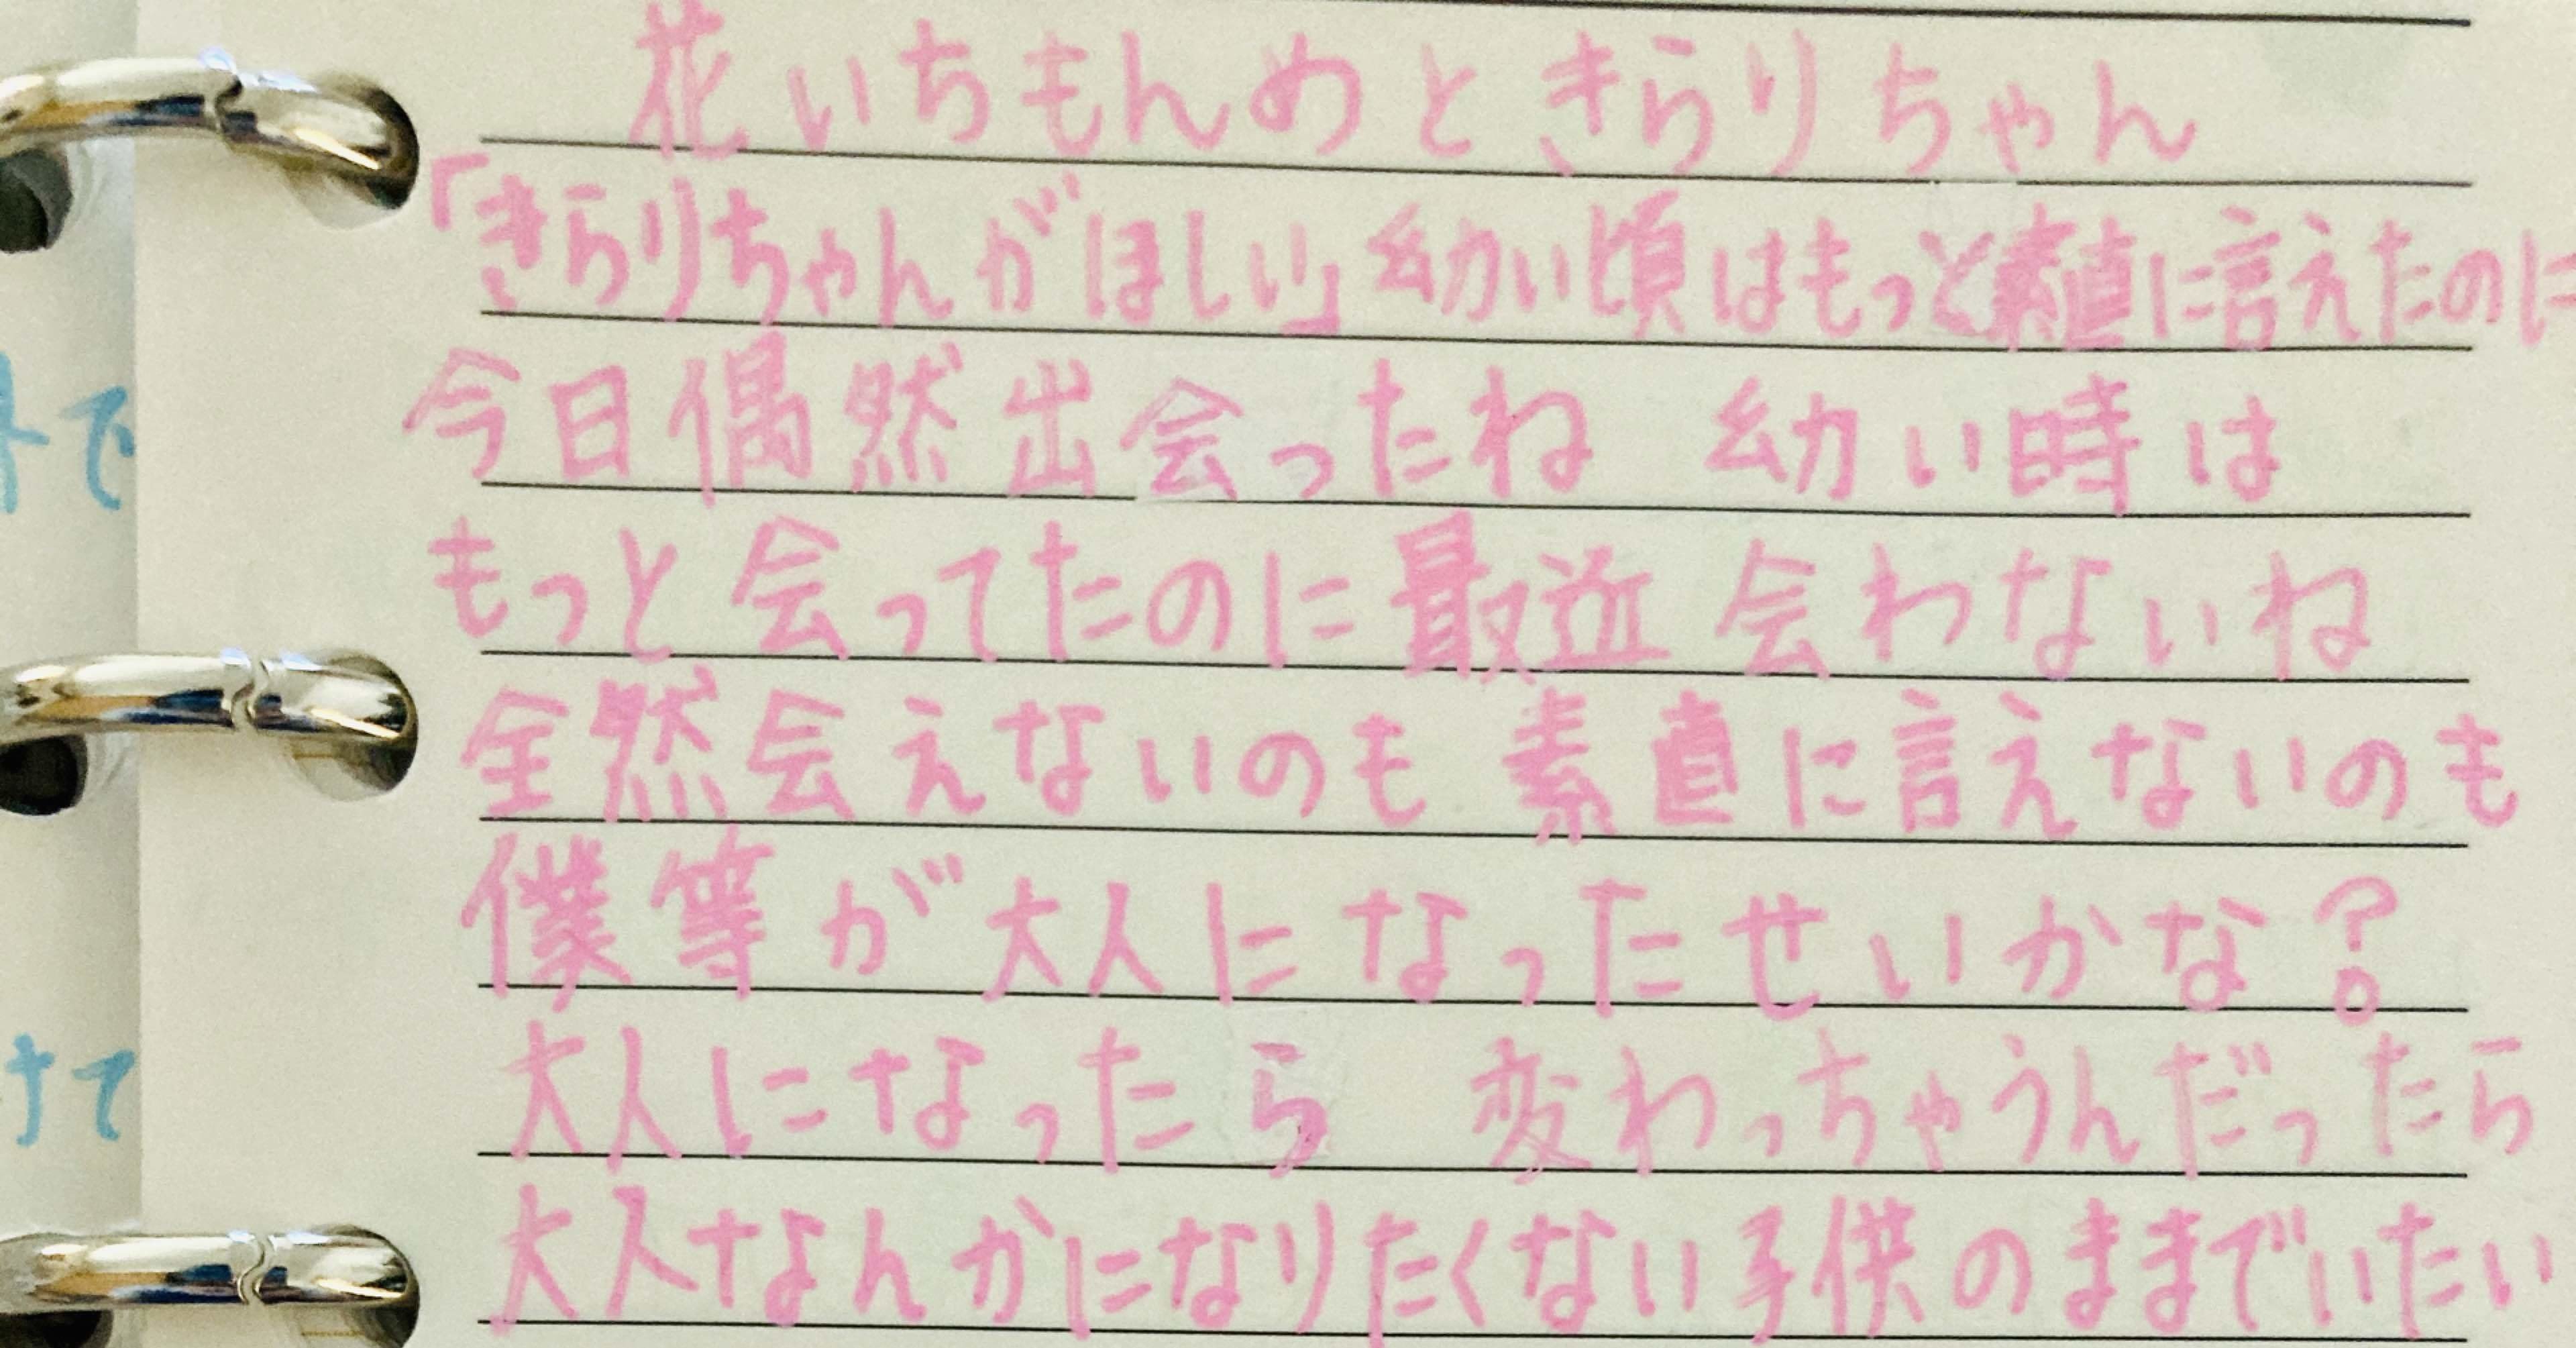 花いちもんめときらりちゃん
「きらりちゃんがほしい」幼い頃はもっと素直に言えたのに
今日偶然出会ったね 幼い時は
もっと会ってたのに最近会わないね
全然会えないのも素直に言えないのも
僕等が大人になったせいかな?
大人になったら 変わっちゃうんだったら
大人なんかになりたくない子供のままでいたい
で
けて